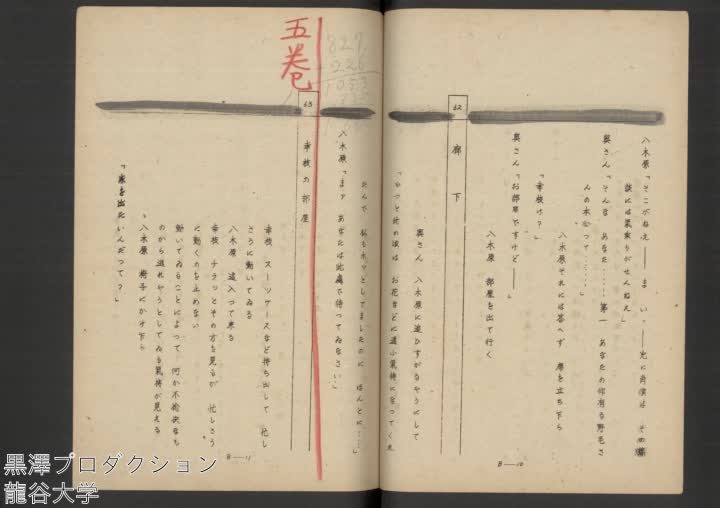 八木原「そこがねえ――まい、――先に肯僕は その話
には気乗りがせんねえ」
奥さん「そんな あなた……第一 あなたの仰有る野毛さ
んの本心って……」
八木原それには答へず 席を立ち上る
「幸枝は?」
奥さん「お部屋ですけど――」
八木原 部屋を出て行く
62
廊下
奥さん 八木原に追ひすがるやうにして
「やっと此の頃は お花などに通ふ気持になってくれ
B―10
たんで 私もホッとしてましたのに ほんとに……」
八木原「まァ あなたは此処で待ってゐなさい」
五巻
827
226
1053
63
幸枝の部屋
幸枝 スーツケースなど持ち出して 忙し
さうに動いてゐる
八木原 這入って来る
幸枝 チラッとその方を見るが 忙しさう
に動くのを止めない
動いてゐることによって 何か不愉快なも
のから逃れやうとしてゐる気持が見える
八木原 椅子にかけ乍ら
「家を出たいんだって?」
B―11
黒澤プロダクション
龍谷大学